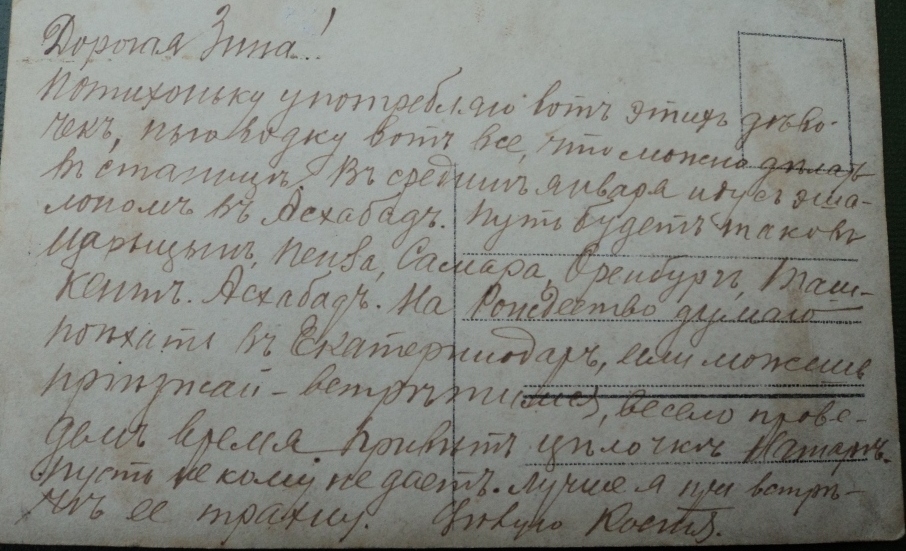 Дорогая Зина!
Потихоньку употребляю вотъ этихъ дѣво-
чекъ, пью водку вотъ все, что можно дѣлать
въ станицѣ. Въ срединѣ января иду съ эша-
лономъ въ Асхабадъ. Путь будетъ таковъ
Царыцынъ, Пенза, Самара, Оренбургъ, Таш-
кентъ. Асхабадъ. На Рождество думаю
поѣхать въ Екатеринодаръ, если можешь
пріѣзжай - встрѣтимся, весело прове-
демъ время. Привѣтъ цѣлочкѣ
пусть не кому не даетъ. лучше я при встрѣ-
чѣ ее трахну. Цѣлую Костя.